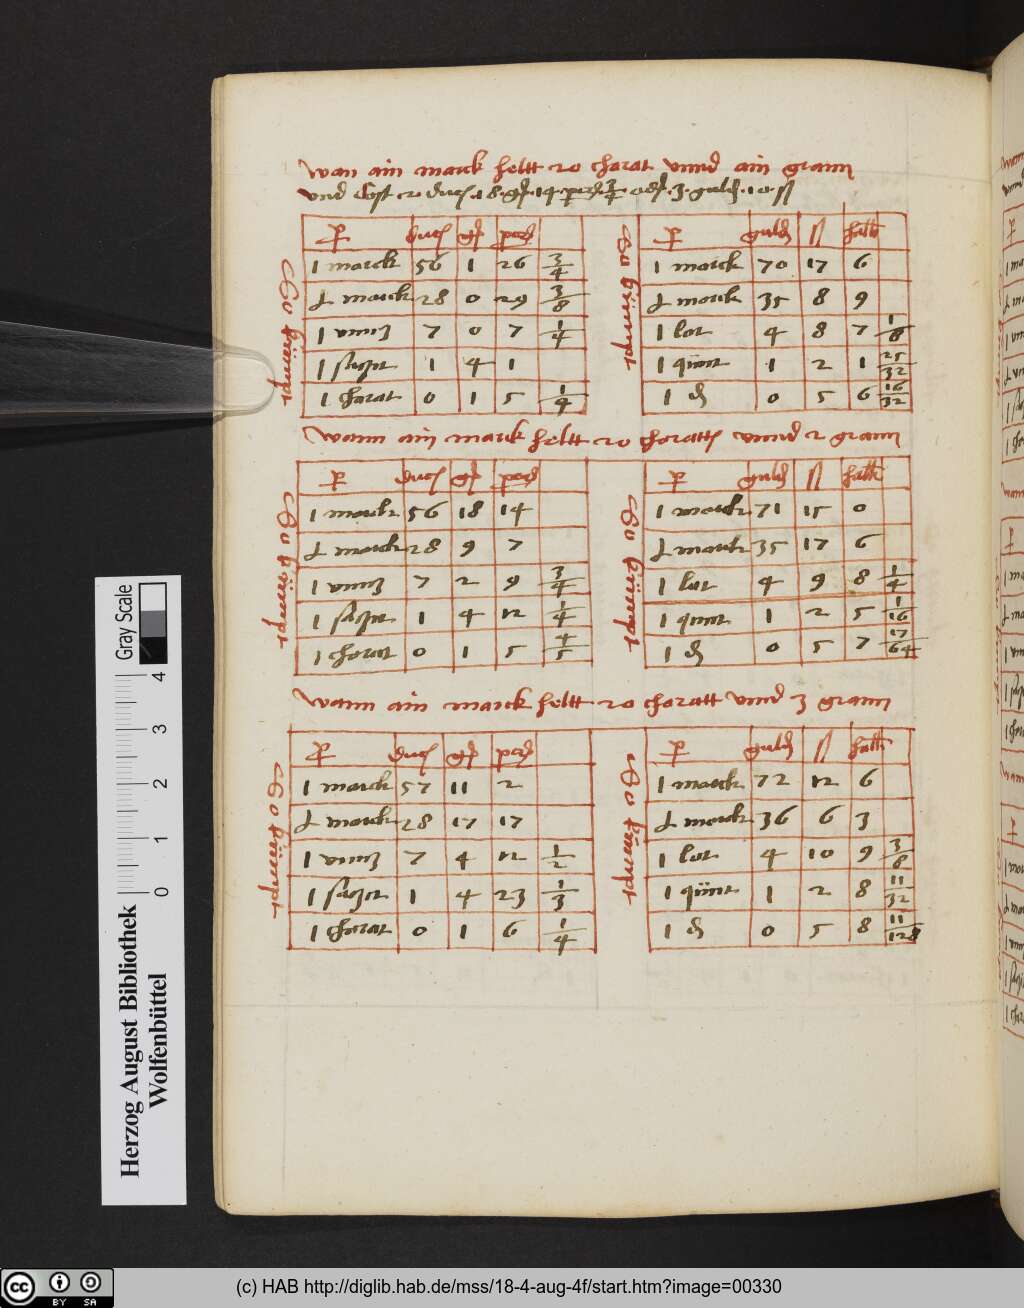 wan ain marck heltt 20 charat vnnd ain grann
vnd cost 2 duc 18 gl 14
p duc gl
1 marck 56 1 26 3/4
marck 28 0 29 3/8
1 vnnz 7 0 7 1/4
1 1 4 1
1 charat 0 1 5 1/4
So kumpt
guld ß hall
1 marck 70 17 6
marck 35 8 9
1 lot 4 8 7 1/8
1 quint 1 2 1 25/32
1 0 5 6 16/32
So kumpt
wann ain marck heltt 20 charatt vnnd 2 grann
duc gl
1 marck 56 18 14
marck 28 9 7
1 vnnz 7 2 9 3/4
1 1 4 12 1/4
1 charat 0 1 5 4/5
So kumpt
guld ß hall
1 marck 71 15 0
marck 35 17 6
1 lot 4 9 8 1/4
1 quint 1 2 5 1/16
1 0 5 7 17/64
So kumpt
wann ain marck heltt 20 charatt vnnd 3 grann
duc gl
1 marck 57 11 2
marck 28 17 17
1 vnnz 7 4 12 1/2
1 1 4 23 1/3
1 charat 0 1 6 1/4
So kumpt
guld ß hall
1 marck 72 12 6
marck 36 6 3
1 lot 4 10 9 3/8
1 quint 1 2 8 11/32
1 0 5 8 11/128
So kumpt
Gray Scale
0 1 2 3 4
Herzog August Bibliothek
Wolfenbüttel
cc BY SA
(c) HAB http://diglib.hab.de/mss/18-4-aug-4f/start.htm?image=00330